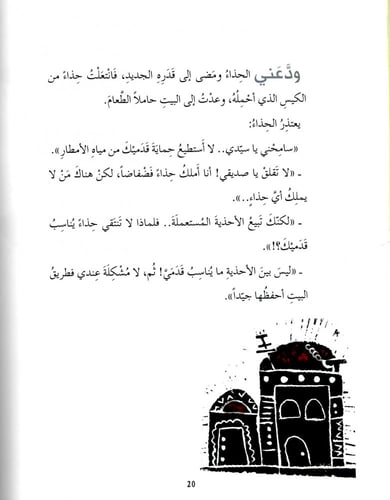 ودَّعَني الحِذاءُ ومَضى إلى قَدَرِهِ الجديدِ، فَانْتَعَلْتُ حِذاءً من
الكيسِ الذي أحْمِلُهُ، وعدْتُ إلى البيتِ حاملاً الطَّعامَ.
يعتذِرُ الحِذاءُ:
«سامِحْني يا سيِّدي.. لا أَستطيعُ حِمايةَ قَدَميْكَ من مياهِ الأمطارِ».
ـ «لا تَقلقْ يا صديقي! أنا أملكُ حِذاءً فَضْفاضاً، لكنْ هناكَ مَنْ لا
يملِكُ أيَّ حِذاءٍ..».
ـ «لكنَّكَ تَبيعُ الأحذيةَ المُستعملَةَ.. فلماذا لا تَنتَقي حِذاءً يُناسِبُ
قَدَميْكَ؟!».
ـ «ليسَ بينَ الأحذيةِ ما يُناسِبُ قدَمَيَّ! ثُم، لا مُشْكِلَةَ عِندي فطريقُ
البيتِ أحفظُها جيِّداً».
20